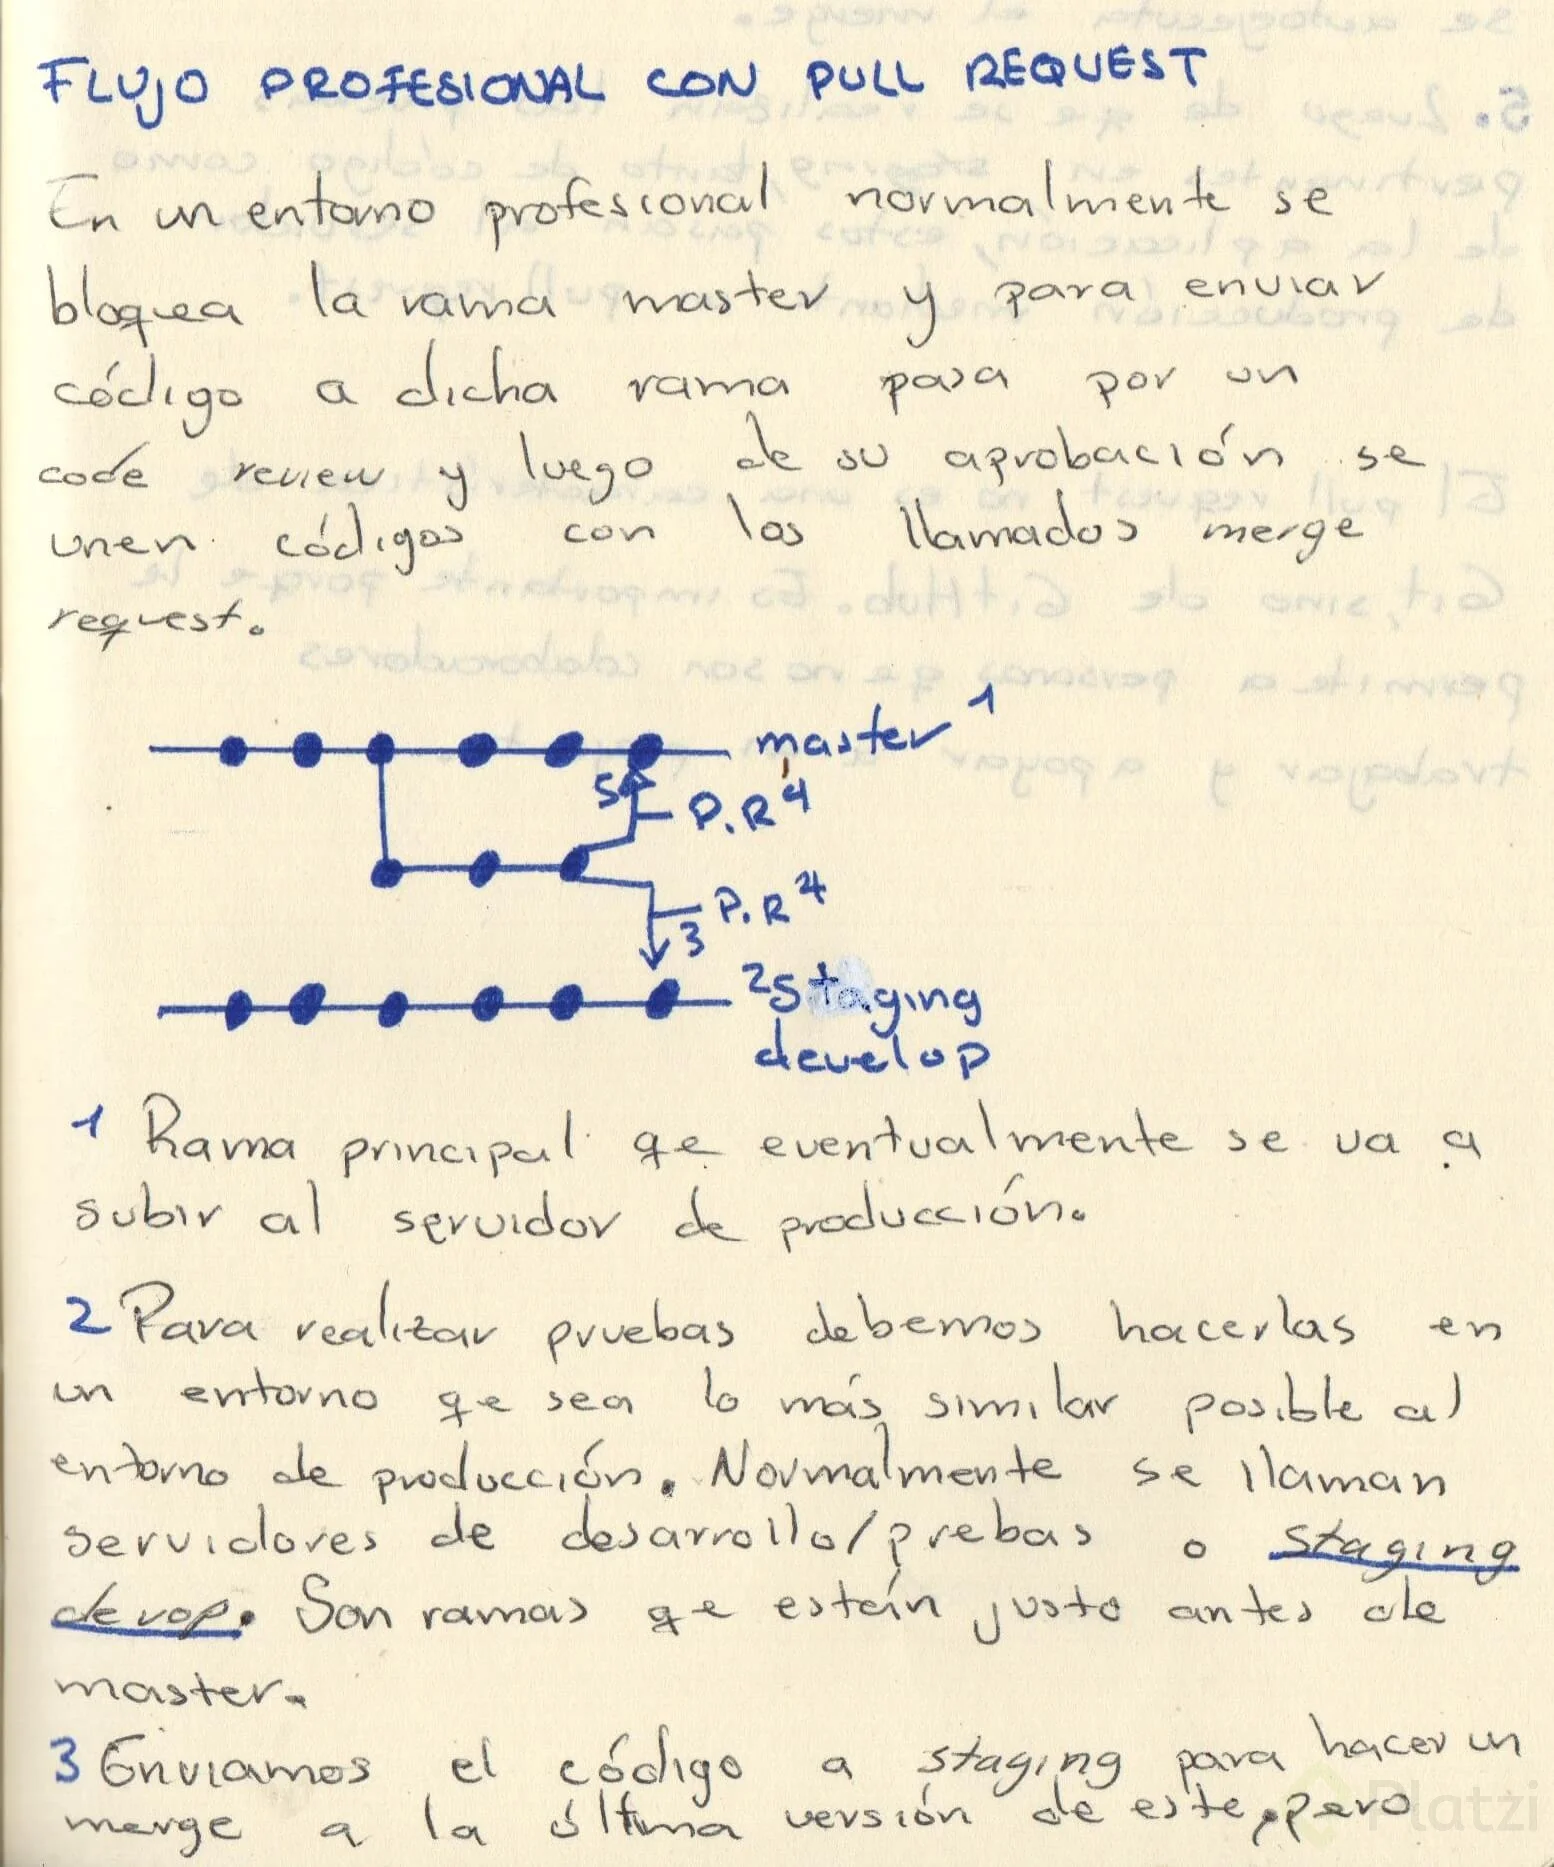 FLUJO PROFESIONAL CON PULL REQUEST
En un entorno profesional normalmente se
bloquea la rama master y para enviar
código a dicha rama pasa por un
code review y luego de su aprobación se
unen códigos con los llamados merge
request.
master 1
5 P.R 4
P.R 4
3
2 Staging
develop
1 Rama principal qe eventualmente se va a
subir al servidor de producción.
2 Para realizar pruebas debemos hacerlas en
un entorno qe sea lo más similar posible al
entorno de producción. Normalmente se llaman
servidores de desarrollo/prebas o staging
devop. Son ramas qe están justo antes de
master.
3 Enviamos el código a staging para hacer un
merge a la última versión de este, pero
Platzi